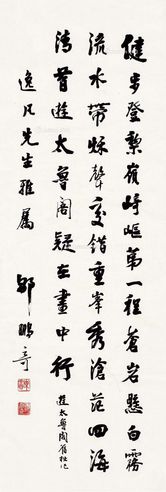 健步登梨嶺崎嶇第一程蒼岩懸白霧
流水帶秋聲交錯重峯秀滄茫四海
清昔遊太魯閣疑在畫中行
遊太魯閣舊
逸凡先生雅屬
鄒鵬奇